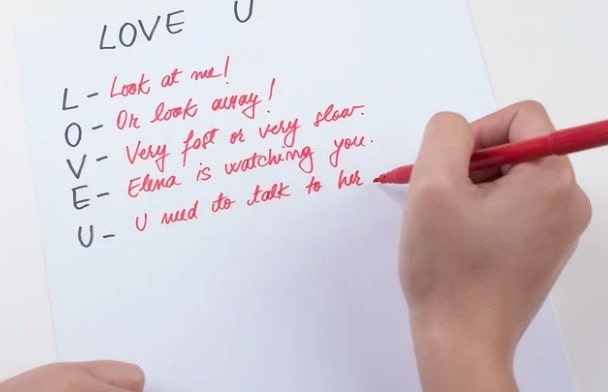 LOVE U
L - Look at me!
O - Or look away!
V - Very fast or very slow.
E - Elena is watching you.
U - U need to talk to her